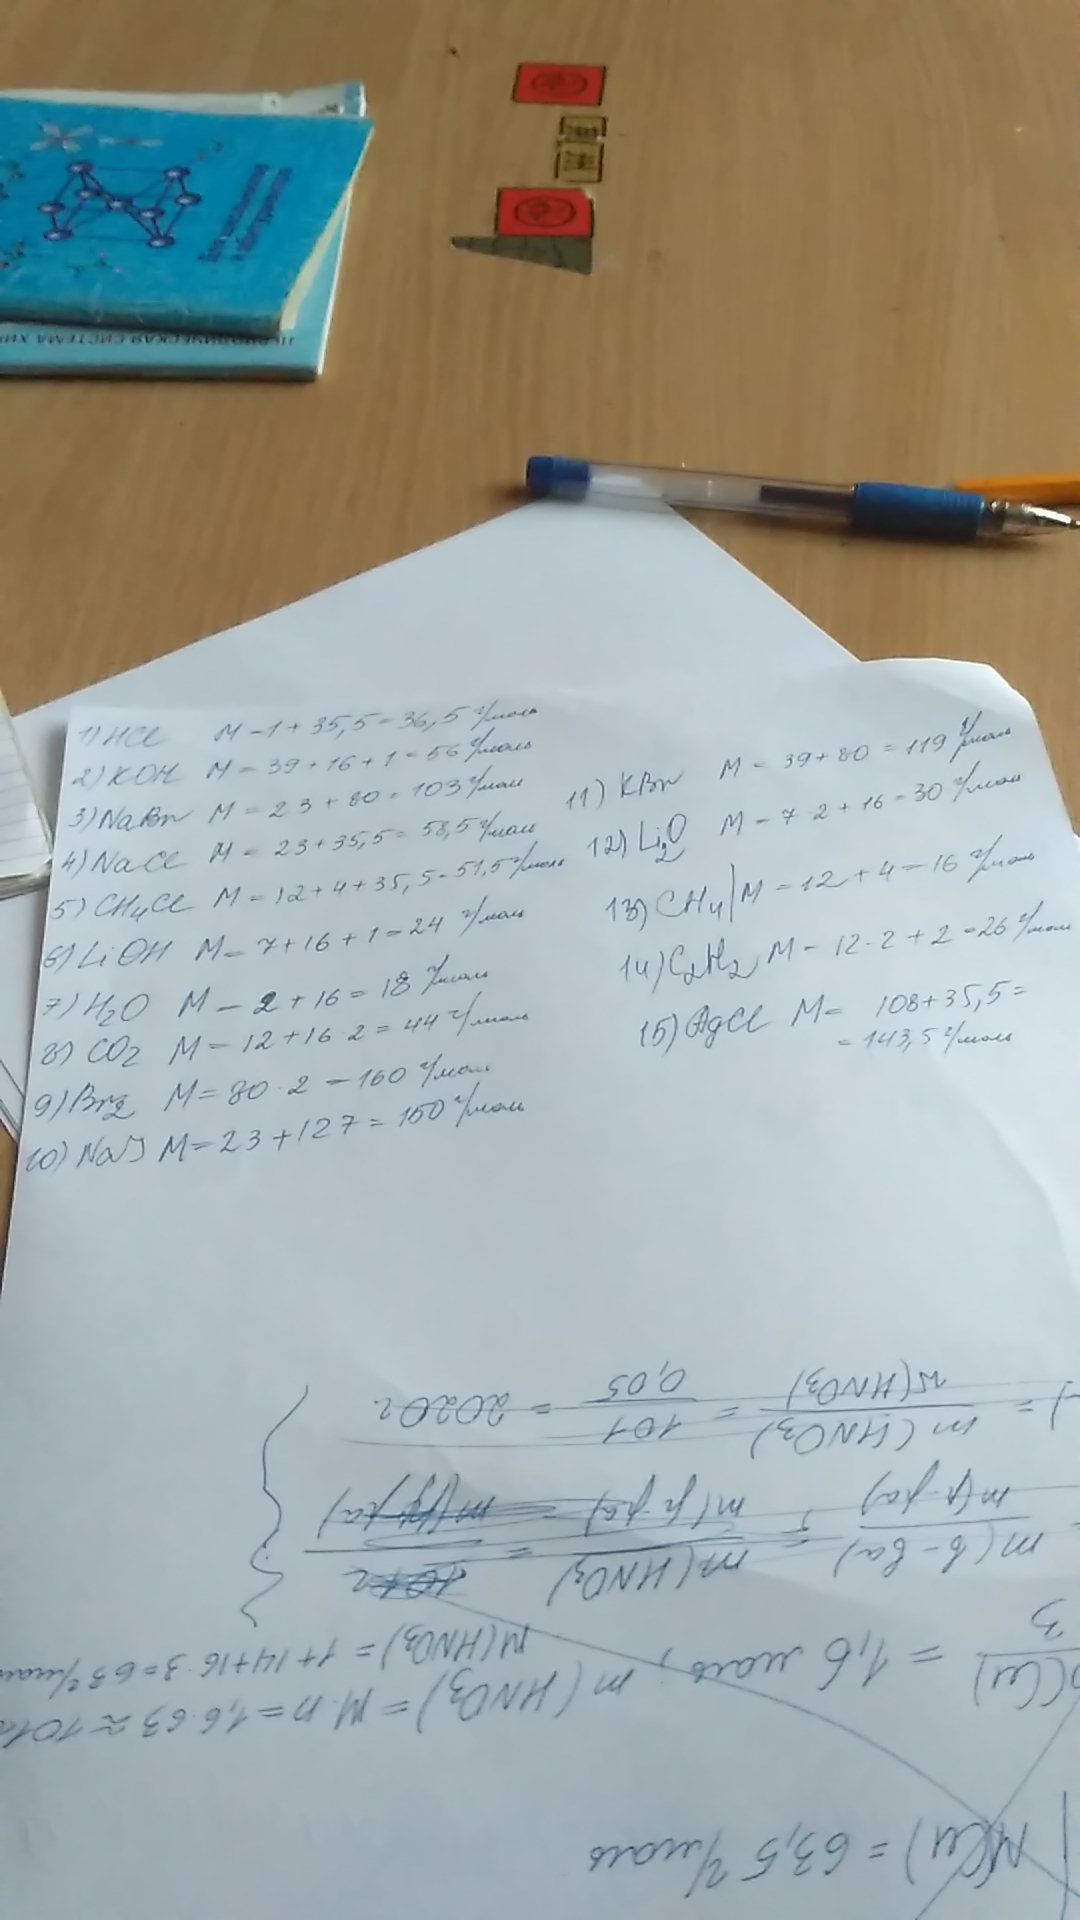 ПЕРИОДИЧЕСКАЯ СИСТЕМА ХИМ
1) HCl M - 1 + 35,5 = 36,5 г/моль
2) KOH M = 39 + 16 + 1 = 56 г/моль
3) NaBr M = 23 + 80 = 103 г/моль
4) NaCl M = 23 + 35,5 = 58,5 г/моль
5) CH4Cl M = 12 + 4 + 35,5 - 51,5 г/моль
6) LiOH M = 7 + 16 + 1 = 24 г/моль
7) H2O M - 2 + 16 = 18 г/моль
8) CO2 M = 12 + 16 · 2 = 44 г/моль
9) Br2 M = 80 · 2 - 160 г/моль
10) NaJ M = 23 + 127 = 150 г/моль
11) KBr M = 39 + 80 = 119 г/моль
12) Li2O M - 7 · 2 + 16 - 30 г/моль
13) CH4 | M = 12 + 4 - 16 г/моль
14) C2H2 M - 12 · 2 + 2 = 26 г/моль
15) AgCl M = 108 + 35,5 =
= 143,5 г/моль
M(Cu) = 63,5 г/моль
m(HNO3) = M · n = 1,6 · 63 ≈ 101г
M(HNO3) = 1 + 14 + 16 · 3 = 63 г/моль
(Cu)
3
= 1,6 моль,
m(в-ва)
m(р-ра)
=
m(HNO3)
m(р-ра)
=
m(HNO3)
w(HNO3)
=
101
0,05
= 2020г